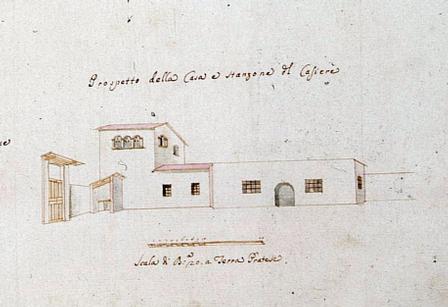 Prospetto della Casa e stanzone del Casiere
Scala di a Terra Pratese.